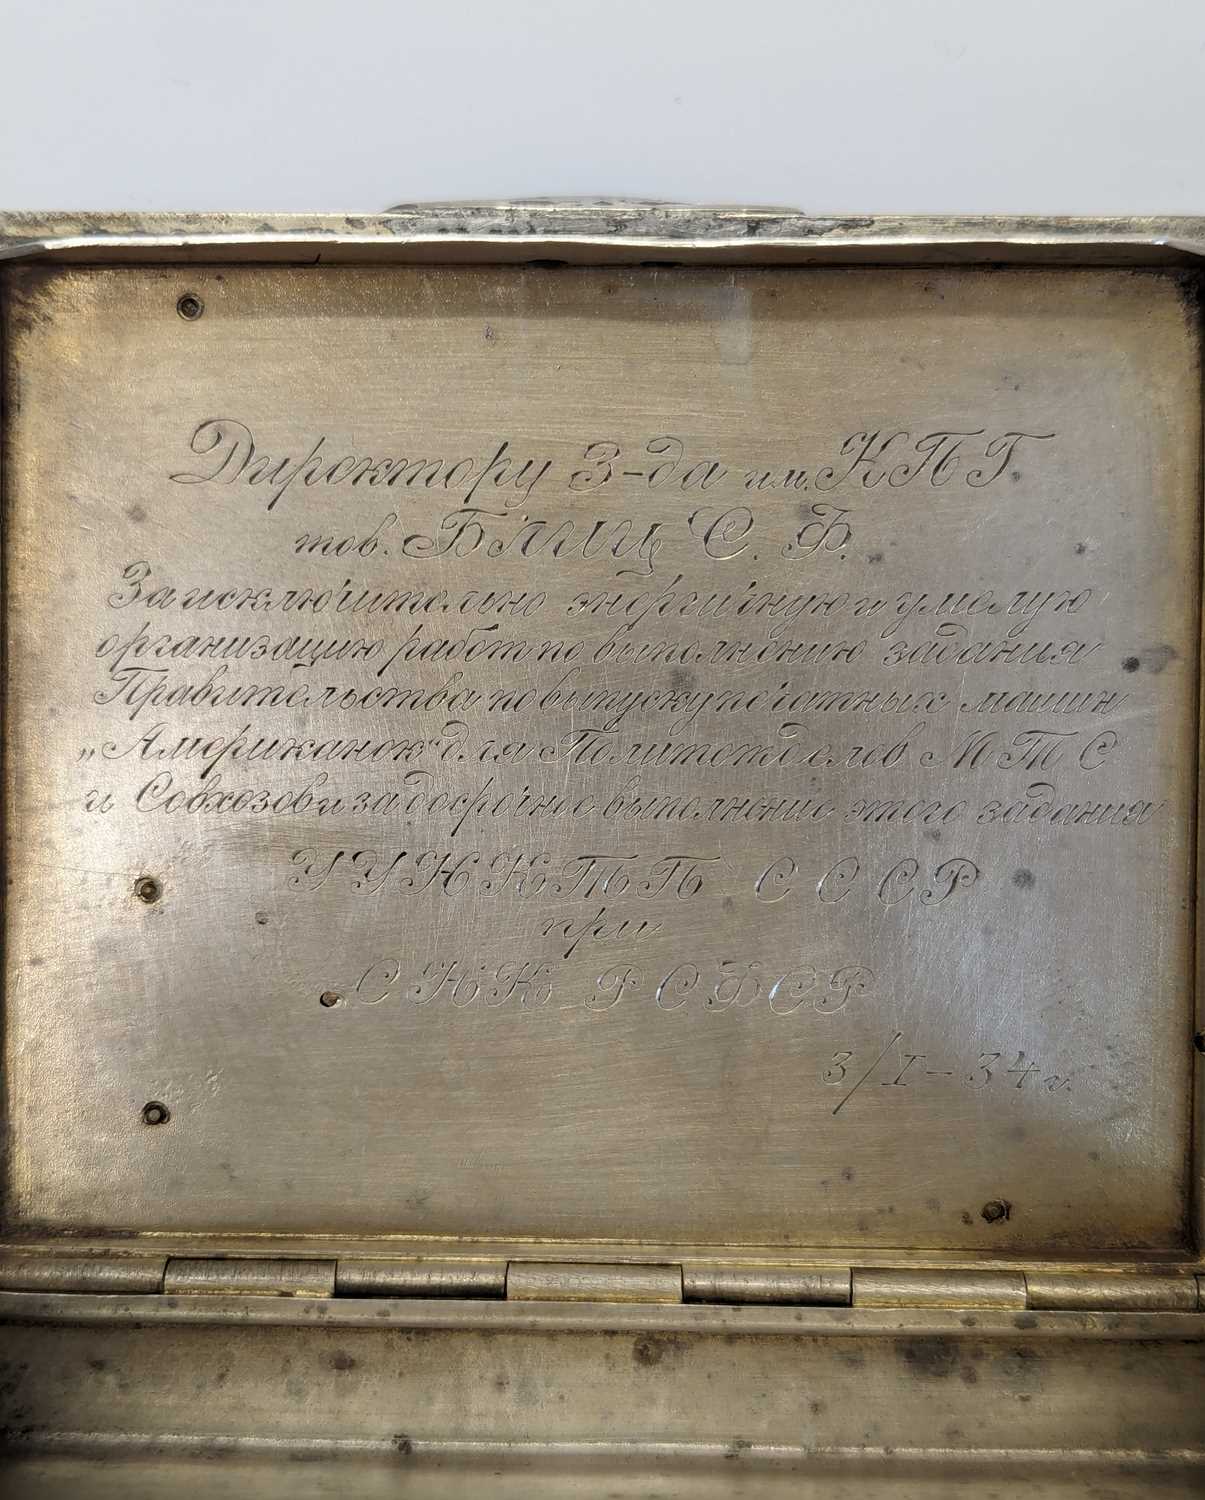 Директору З-да им. КПГ.
тов. БЛИЦ С. Ф.
За исключительно энергичную и умелую
организацию работ по выполнению задания
Правительства по выпуску печатных машин
„Американок" для Политотделов МТС
и Совхозов и за досрочное выполнение этого задания
УУНКТП СССР
при
СНК РСФСР
3/I-34 г.